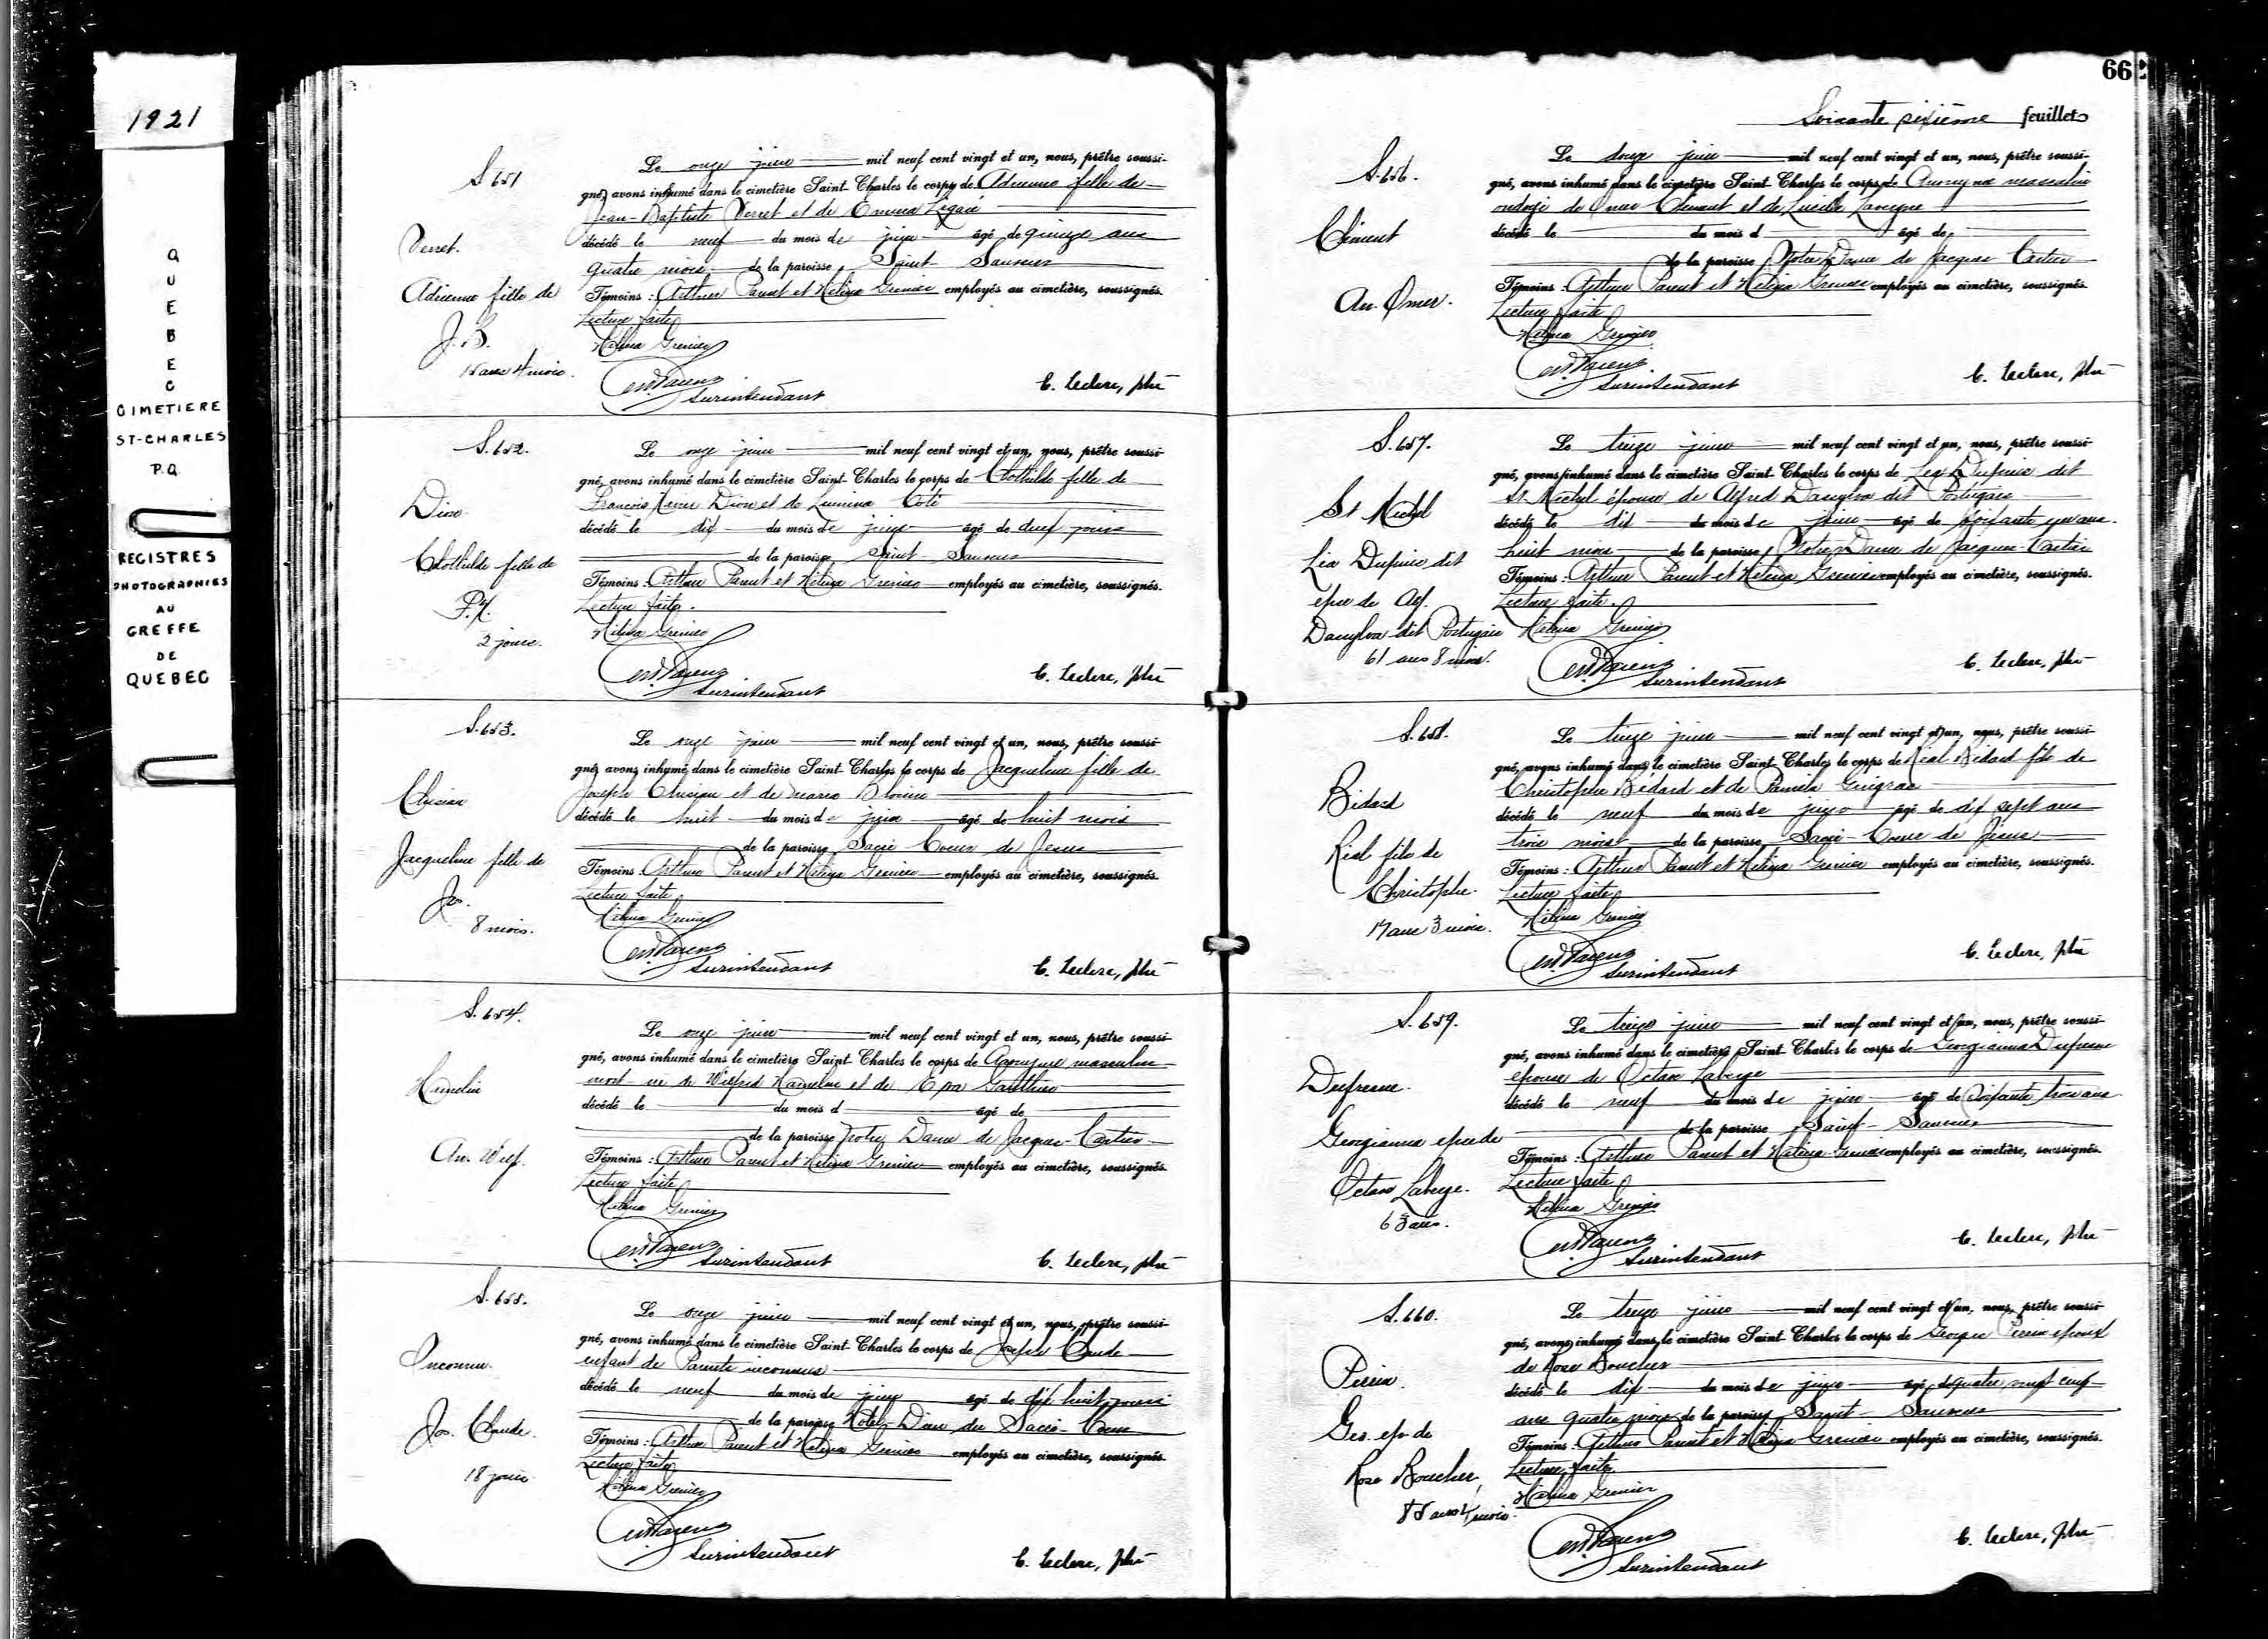 1921
QUEBEC
CIMETIERE
ST-CHARLES
P.Q
REGISTRES
PHOTOGRAPHIES
AU
GREFFE
DE
QUEBEC
S 651
Verret.
Adrienne fille de
J. B.
15 ans 4 mois.
Le onze juin mil neuf cent vingt et un, nous, prêtre soussi-
gné, avons inhumé dans le cimetière Saint-Charles le corps de Adrienne fille de
Jean-Baptiste Verret et de Emma Légaré
décédé le neuf du mois de juin âgé de quinze ans
quatre mois de la paroisse Saint Sauveur
Témoins : Arthur Parent et Hélina Grenier employés au cimetière, soussignés.
Lecture faite
Hélina Grenier
Surintendant
C. Leclerc, ptre
S. 652.
Dion
Clothilde fille de
F. X.
2 jours.
Le onze juin mil neuf cent vingt et un, nous, prêtre soussi-
gné, avons inhumé dans le cimetière Saint-Charles le corps de Clothilde fille de
François Xavier Dion et de Lumina Coté
décédé le dix du mois de juin âgé de deux jours
de la paroisse Saint Sauveur
Témoins : Arthur Parent et Hélina Grenier employés au cimetière, soussignés.
Lecture faite.
Hélina Grenier
Surintendant
C. Leclerc, ptre
S. 653.
Jacqueline fille de
Jos.
8 mois.
Le onze juin mil neuf cent vingt et un, nous, prêtre soussi-
gné, avons inhumé dans le cimetière Saint-Charles le corps de Jacqueline fille de
Joseph et de Maria
décédé le huit du mois de juin âgé de huit mois
de la paroisse Sacré Coeur de Jesus
Témoins : Arthur Parent et Hélina Grenier employés au cimetière, soussignés.
Lecture faite
Hélina Grenier
Surintendant
C. Leclerc, ptre
S. 654.
Hamelin
An. Wilf.
Le onze juin mil neuf cent vingt et un, nous, prêtre soussi-
gné, avons inhumé dans le cimetière Saint-Charles le corps de Anonyme masculin
mort-né de Wilfrid Hamelin et de Eva Gauthier
décédé le du mois d âgé de
de la paroisse Notre Dame de Jacques-Cartier
Témoins : Arthur Parent et Hélina Grenier employés au cimetière, soussignés.
Lecture faite
Hélina Grenier
Surintendant
C. Leclerc, ptre
S. 655.
Inconnu.
Jos. Claude.
18 jours
Le onze juin mil neuf cent vingt et un, nous, prêtre soussi-
gné, avons inhumé dans le cimetière Saint-Charles le corps de Joseph Claude
enfant de Parents inconnus
décédé le neuf du mois de juin âgé de dix huit jours
de la paroisse Hotel-Dieu du Sacré-Coeur
Témoins : Arthur Parent et Hélina Grenier employés au cimetière, soussignés.
Lecture faite
Hélina Grenier
Surintendant
C. Leclerc, ptre
66
Soixante sixième feuillet
S. 656.
Clément
An. Omer.
Le douze juin mil neuf cent vingt et un, nous, prêtre soussi-
gné, avons inhumé dans le cimetière Saint-Charles le corps de Anonyme masculin
ondoyé de Omer Clément et de Lucille Lavergne
décédé le du mois d âgé de
de la paroisse Notre Dame de Jacques Cartier
Témoins : Arthur Parent et Hélina Grenier employés au cimetière, soussignés.
Lecture faite
Hélina Grenier
Surintendant
C. Leclerc, ptre
S. 657.
St Michel
Léa Dufour dit
epse de Alf.
Dauylva dit Portugais
61 ans 8 mois.
Le treize juin mil neuf cent vingt et un, nous, prêtre soussi-
gné, avons inhumé dans le cimetière Saint-Charles le corps de Léa dit
St Michel épouse de Alfred Dauylva dit Portugais
décédé le dix du mois de juin âgé de soixante un ans
huit mois de la paroisse Notre Dame de Jacques Cartier
Témoins : Arthur Parent et Hélina Grenier employés au cimetière, soussignés.
Lecture faite.
Hélina Grenier
Surintendant
C. Leclerc, ptre
S. 658.
Bédard
Réal fils de
Christophe.
17 ans 3 mois.
Le treize juin mil neuf cent vingt et un, nous, prêtre soussi-
gné, avons inhumé dans le cimetière Saint-Charles le corps de Réal Bédard fils de
Christophe Bédard et de Paméla Guignac
décédé le neuf du mois de juin âgé de dix sept ans
trois mois de la paroisse Sacré-Coeur de Jésus
Témoins : Arthur Parent et Hélina Grenier employés au cimetière, soussignés.
Lecture faite
Hélina Grenier
Surintendant
C. Leclerc, ptre
S. 659.
Dufresne.
Georgianna epse de
Octave Laberge.
63 ans.
Le treize juin mil neuf cent vingt et un, nous, prêtre soussi-
gné, avons inhumé dans le cimetière Saint-Charles le corps de Georgianna Dufresne
épouse de Octave Laberge
décédé le neuf du mois de juin âgé de soixante trois ans
de la paroisse Saint-Sauveur
Témoins : Arthur Parent et Hélina Grenier employés au cimetière, soussignés.
Lecture faite
Hélina Grenier
Surintendant
C. Leclerc, ptre
S. 660.
Perrin.
Geo. ep. de
Rose Boucher,
85 ans 4 mois.
Le treize juin mil neuf cent vingt et un, nous, prêtre soussi-
gné, avons inhumé dans le cimetière Saint-Charles le corps de Georges Perrin époux
de Rose Boucher
décédé le dix du mois de juin âgé de quatre vingt cinq
ans quatre mois de la paroisse Saint-Sauveur
Témoins : Arthur Parent et Hélina Grenier employés au cimetière, soussignés.
Lecture faite.
Hélina Grenier
Surintendant
C. Leclerc, ptre